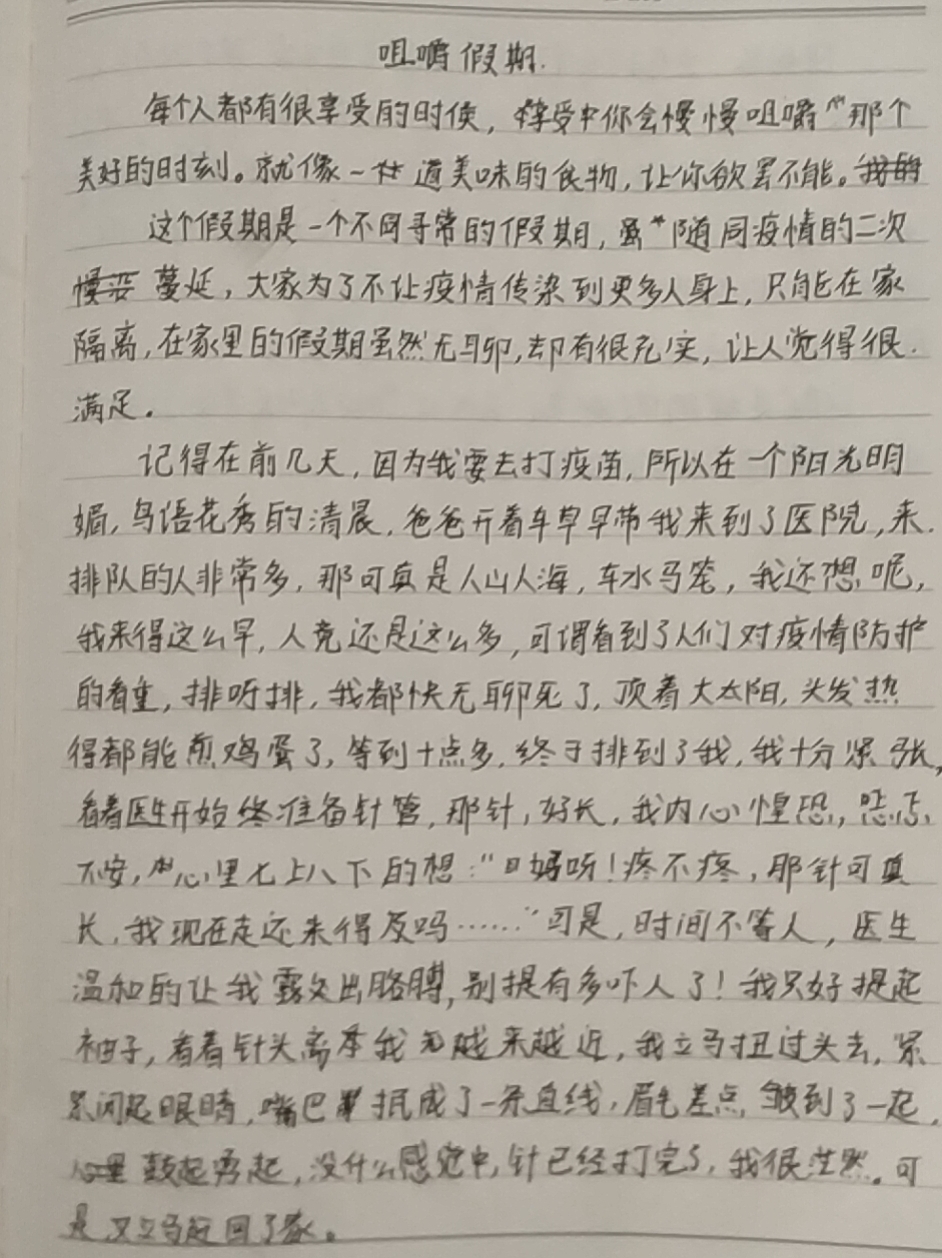 咀嚼假期.
每个人都有很享受的时候，享受中你会慢慢咀嚼那个
美好的时刻。就像一道美味的食物，让你欲罢不能。
这个假期是一个不同寻常的假期，随同疫情的二次
蔓延，大家为了不让疫情传染到更多人身上，只能在家
隔离，在家里的假期虽然无聊，却有很充实，让人觉得很
满足。
记得在前几天，因为我要去打疫苗，所以在一个阳光明
媚，鸟语花秀的清晨，爸爸开着车早早带我来到了医院，来
排队的人非常多，那可真是人山人海，车水马笼，我还想呢，
我来得这么早，人竟还是这么多，可谓看到了人们对疫情防护
的看重，排呀排，我都快无聊死了，顶着大太阳，头发热
得都能煎鸡蛋了，等到十点多，终于排到了我，我十分紧张，
看着医生开始准备针管，那针，好长，我内心惶恐，忐忑
不安，心里七上八下的想：“妈呀！疼不疼，那针可真
长，我现在走还来得及吗……”可是，时间不等人，医生
温和的让我露出胳膊，别提有多吓人了！我只好提起
袖子，看着针头离我越来越近，我立马扭过头去，紧
紧闭起眼睛，嘴巴抿成了一条直线，眉毛差点皱到了一起，
鼓起勇起，没什么感觉中，针已经打完了，我很茫然。可
是又立马赶回了家。